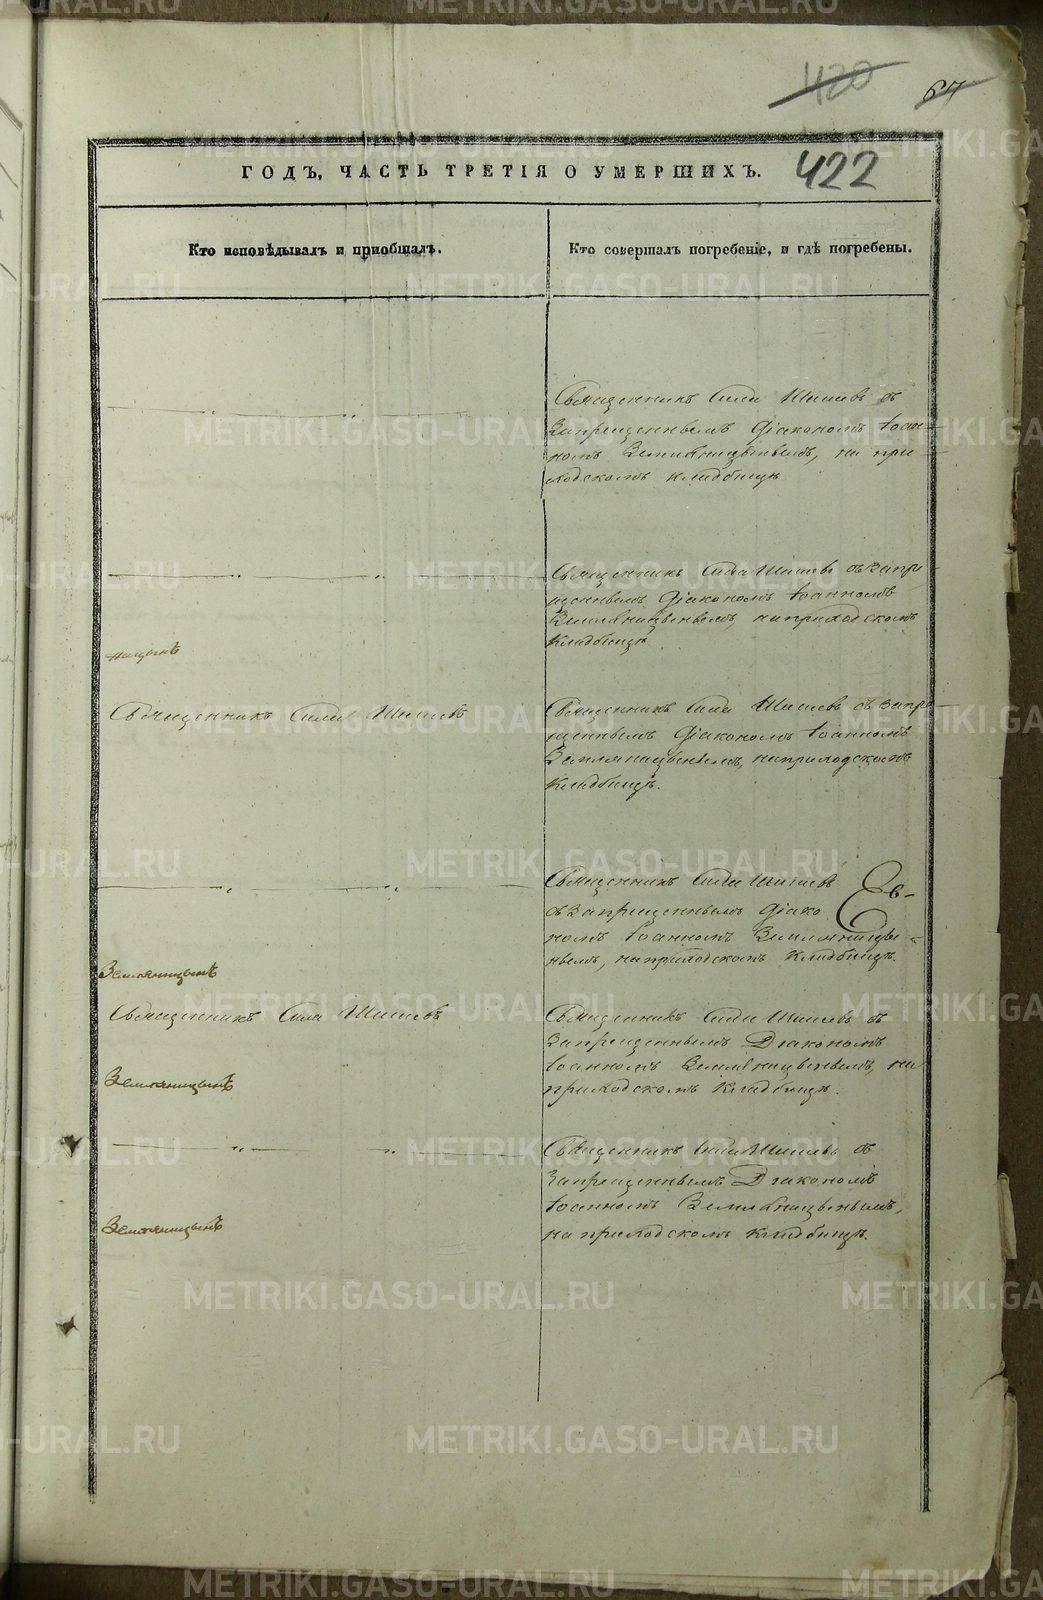 420
67
ГОДЪ, ЧАСТЬ ТРЕТІЯ О УМЕРШИХЪ.
422
Кто исповѣдывалъ и пріобщалъ.
Кто совершалъ погребеніе, и гдѣ погребены.
Священникъ Сила Шишевъ съ
Запрещеннымъ Діакономъ Іоан-
номъ Земляницынымъ, на при-
ходскомъ кладбищѣ
Священникъ Сила Шишевъ съ Запре-
щеннымъ Діакономъ Іоанномъ
Земляницынымъ, на приходскомъ
Кладбищѣ
ницынъ
Священникъ Сила Шишевъ
Священникъ Сила Шишевъ съ Запре-
щеннымъ Діакономъ Іоанномъ
Земляницынымъ, на приходскомъ
Кладбищѣ.
Священникъ Сила Шишевъ
съ Запрещеннымъ Діако
номъ Іоанномъ Земляницы-
нымъ, на приходскомъ Кладбищѣ.
Земляницынъ
Священникъ Сила Шишевъ
Священникъ Сила Шишевъ съ
Запрещеннымъ Діакономъ
Іоанномъ Земляницынымъ, на
приходскомъ Кладбищѣ.
Земляницынъ
Священникъ Сила Шишевъ съ
Запрещеннымъ Діакономъ
Іоанномъ Земляницынымъ,
на приходскомъ Кладбищѣ.
Земляницынъ
METRIKI.GASO-URAL.RU